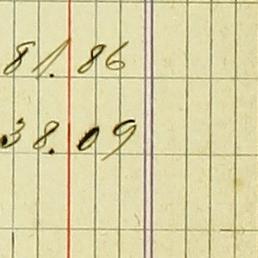 81.86
38.09